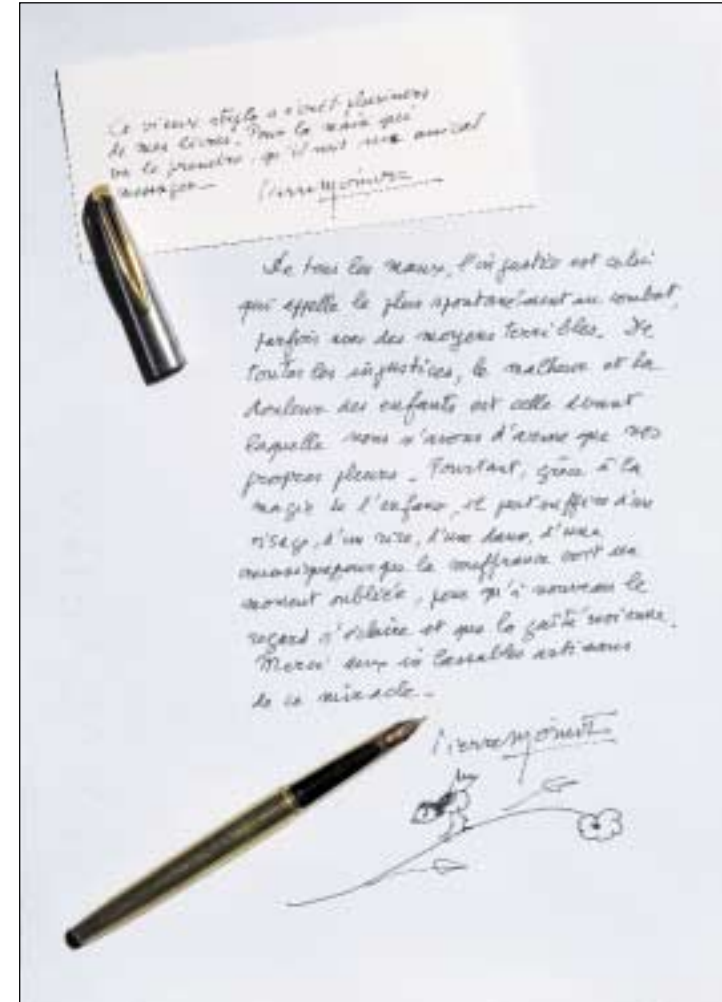 Ce vieux stylo a écrit plusieurs
de mes livres. Pour la main qui
va le prendre, qu'il soit un amical
messager.
Pierre Moinot
De tous les maux, l'injustice est celui
qui appelle le plus spontanément au combat,
parfois avec des moyens terribles. De
toutes les injustices, le malheur et la
douleur des enfants est celle devant
laquelle nous n'avons d'arme que nos
propres pleurs. Pourtant, grâce à la
magie de l'enfance, il peut suffire d'un
visage, d'un rire, d'une danse, d'une
musique pour que la souffrance soit un
moment oubliée, pour qu'à nouveau le
regard s'éclaire et que la gaîté revienne.
Merci aux inlassables artisans
de ce miracle.
Pierre Moinot